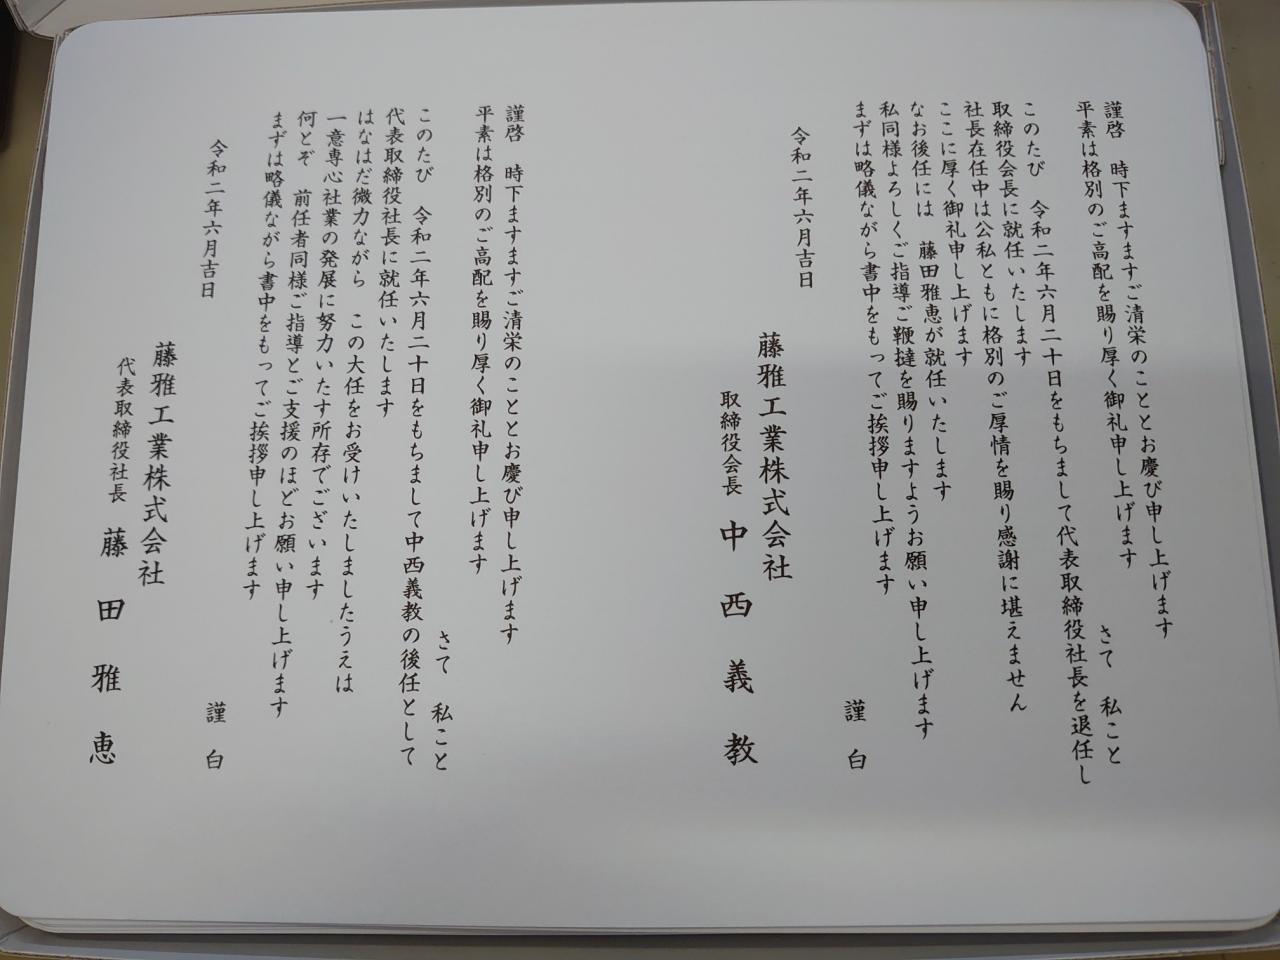 謹啓　時下ますますご清栄のこととお慶び申し上げます
平素は格別のご高配を賜り厚く御礼申し上げます
さて　私こと
このたび　令和二年六月二十日をもちまして代表取締役社長を退任し
取締役会長に就任いたします
社長在任中は公私ともに格別のご厚情を賜り感謝に堪えません
ここに厚く御礼申し上げます
なお後任には　藤田雅恵が就任いたします
私同様よろしくご指導ご鞭撻を賜りますようお願い申し上げます
まずは略儀ながら書中をもってご挨拶申し上げます
謹白
令和二年六月吉日
藤雅工業株式会社
取締役会長　中西義教
謹啓　時下ますますご清栄のこととお慶び申し上げます
平素は格別のご高配を賜り厚く御礼申し上げます
さて　私こと
このたび　令和二年六月二十日をもちまして中西義教の後任として
代表取締役社長に就任いたします
はなはだ微力ながら　この大任をお受けいたしましたうえは
一意専心社業の発展に努力いたす所存でございます
何とぞ　前任者同様ご指導とご支援のほどお願い申し上げます
まずは略儀ながら書中をもってご挨拶申し上げます
謹白
令和二年六月吉日
藤雅工業株式会社
代表取締役社長　藤田雅恵